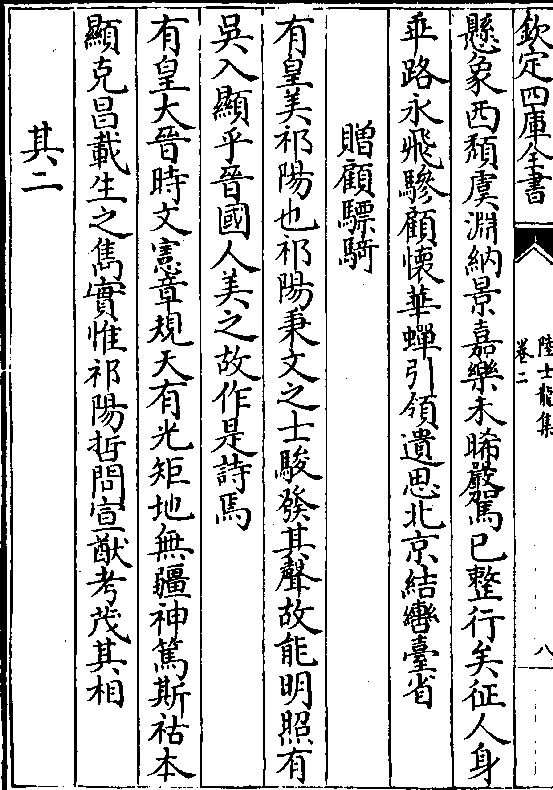 欽定四庫全書
陸士龍集
卷二
八
懸象西頹虞淵納景嘉樂未晞嚴駕已整行矣征人身
乖路永飛驂顧懷華蟬引領遺思北京結轡臺省
贈顧驃騎
有皇美祁陽也祁陽秉文之士駿發其聲故能明照有
吳入顯乎晉國人美之故作是詩焉
有皇大晉時文憲章規天有光矩地無疆神篤斯祜本
顯克昌載生之雋實惟祁陽哲問宣猷考茂其相
其二